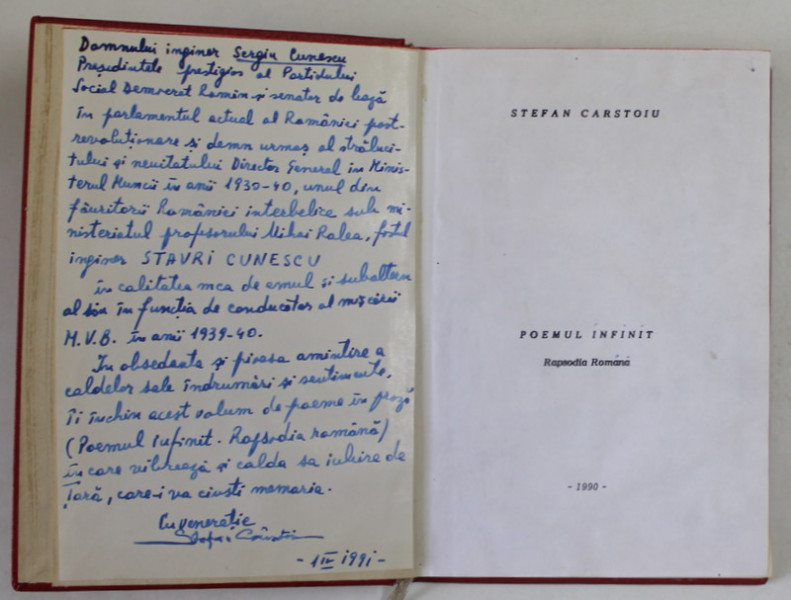 Domnului inginer Sergiu Cunescu
Președintele prestigios al Partidului
Social Democrat Român și senator de
în parlamentul actual al României post-
revoluționare și demn urmaș al străluci-
tului și neuitatului Director General în Minis-
terul Muncii în anii 1930-40, unul din
făuritorii României interbelice sub mi-
nisteriatul profesorului Mihai Ralea, fostul
inginer STAVRI CUNESCU
în calitatea mea de emul și subaltern
al său în funcția de conducător al mișcării
M.V.B. în anii 1939-40.
În obsedanta și pioasa amintire a
caldelor sale îndrumări și sentimente,
îi închin acest volum de poeme în proză
(Poemul infinit. Rapsodia română)
în care vibrează și calda sa iubire de
țară, care-i va cinsti memoria.
Cu generație
- 1 IV 1991 -
STEFAN CARSTOIU
POEMUL INFINIT
Rapsodia Română
- 1990 -